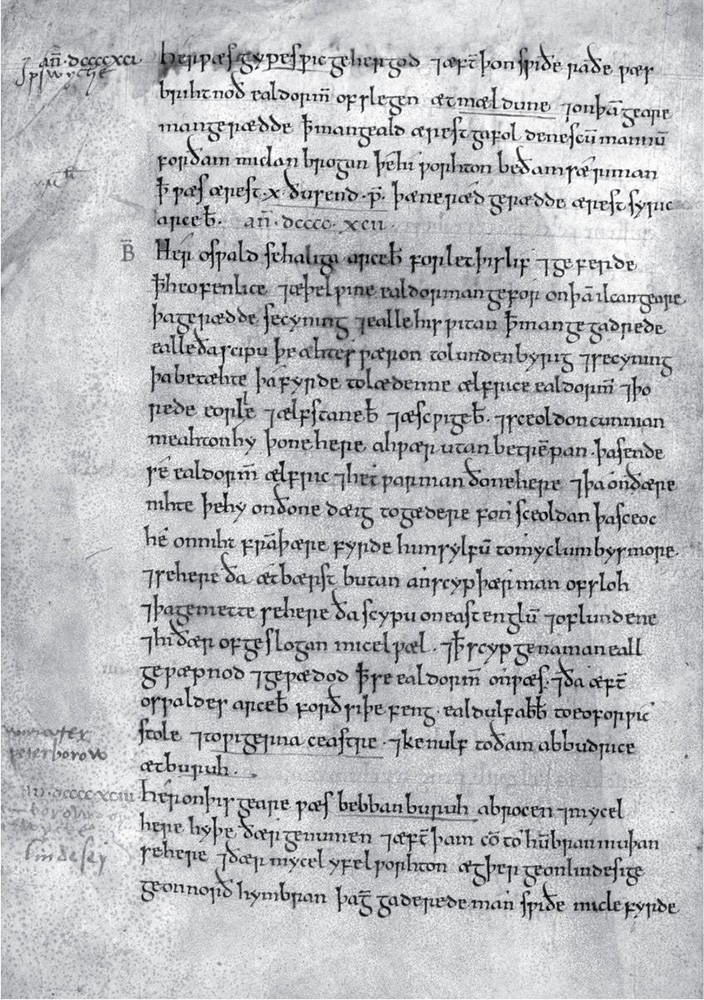 an̄·dcccc xci Her ƿæs gypesƿic gehergod ⁊æfť þon sƿiðe raðe ƿæs
Ipswyche
brihtnoð ealdorm̄ ofslegen æt mældune ⁊on þā geare
man gerædde ꝥ man geald ærest gafol deniscū mannū
for ðam miclan brogan þe hi ƿorhton be ðam sǽ riman
ꝥ ƿæs ærest ·x· ðusend ·p̄· þæne ræd gerædde ærest syric
arceƀ· an̄·dcccc·xcii
B Her osƿald se haliga arceƀ forlet þis lif ⁊geferde
ꝥ heofenlice ⁊æþelƿine ealdorman gefor on þā ilcan geare·
þa gerædde se cyning ⁊ealle his ƿitan ꝥ man gegadrede
ealle ða scipu þe ahtes ƿæron to lundenbyrig ⁊se cyning
þa betæhte þa fyrde to lædenne ælfrice ealdorm̄ ⁊þo
rede eorle ⁊ælfstane ƀ ⁊æscƿige ƀ· ⁊sceoldon cunnian
meahton hy þone here ahƿær utan betreppan· þa sende
se ealdorm̄ ælfric ⁊het ƿarnian ðone here ⁊þa on ðære
nihte þe hy on ðone dæig togædere fon sceoldan þa sceoc
he on niht frā þære fyrde him sylfū to myclum bysmore·
⁊se here ða ætbærst butan an scyp þær man ofsloh
⁊þa gemette se here ða scypu on east englū ⁊of lundene
⁊hi ðær ofgeslogan micel ƿæl· ⁊ꝥ scyp genaman eall
geƿæpnod ⁊geƿædod ꝥ se ealdorm̄ on ƿæs· ⁊ða æfť
osƿaldes arceƀ forðsiþe feng· ealdulf abƀ to eoforƿic
stole ⁊to ƿigerna ceastre· ⁊kenulf to ðam abbudrice
æt buruh·
peterborow
an̄·dcccc xciii Her on þis geare ƿæs bebbanburuh abrocen ⁊mycel
here hyþe ðær genumen ⁊æfť þam cō to hūbran muþan
lindesey
se here ⁊ðær mycel yfel ƿorhton ægþer ge on lindesige
ge on norðhymbran þa gegaderede man sƿiðe micle fyrde